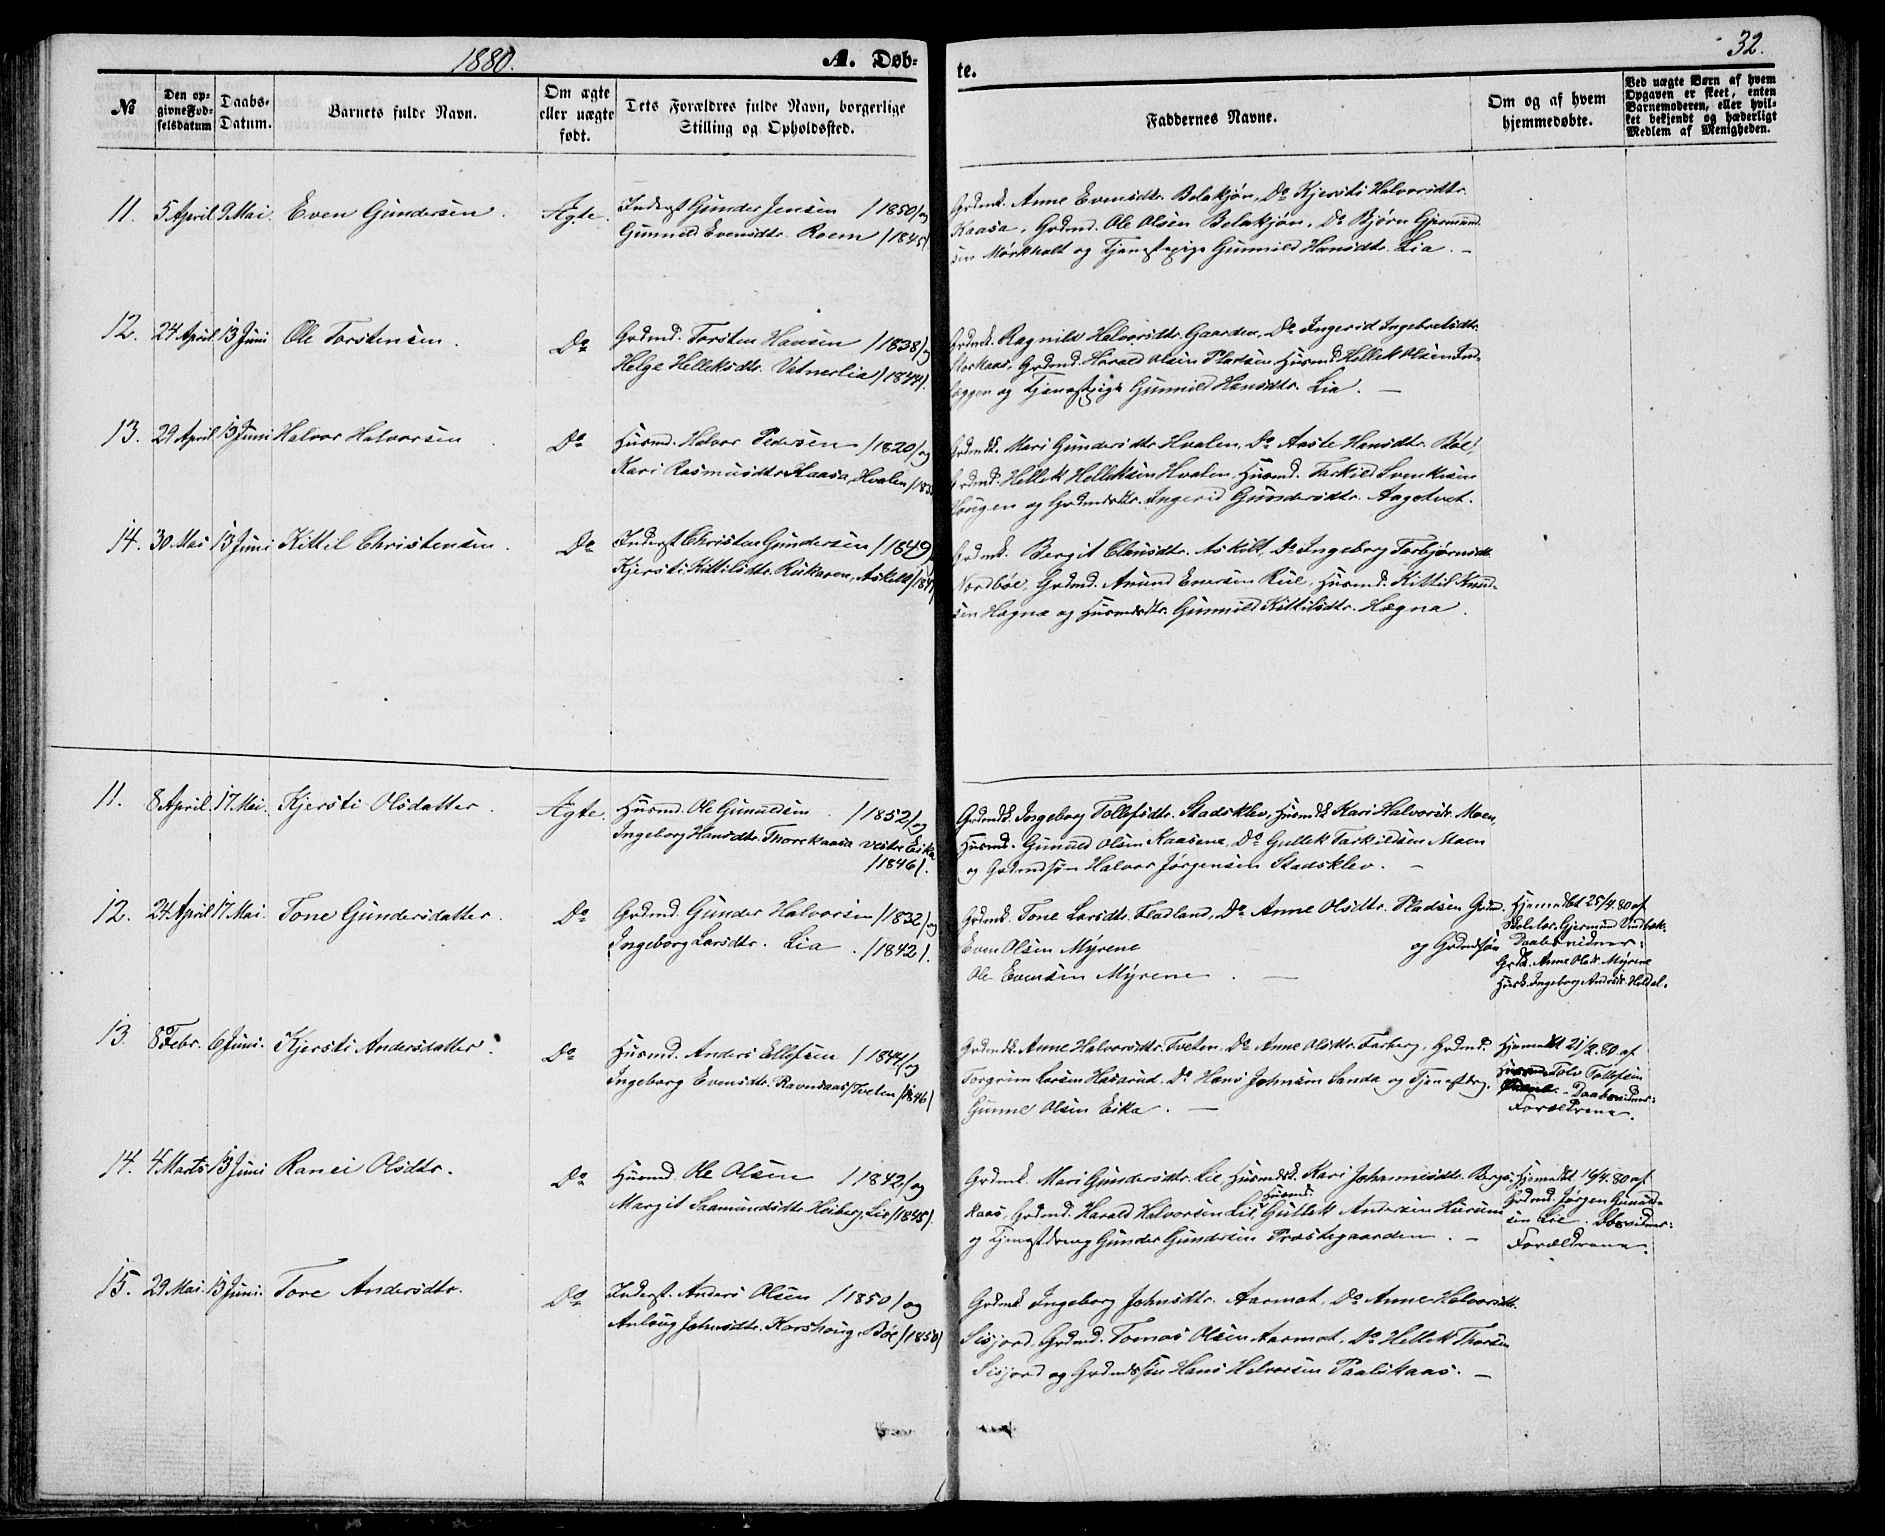 1880.
A. Døb-
te.
32.
№
Den op-
givne Fød-
selsdatum
Daabs-
Datum.
Barnets fulde Navn.
Om ægte
eller uægte
født.
Dets Forældres fulde Navn, borgerlige
Stilling og Opholdssted.
Faddernes Navne.
Om og af hvem
hjemmedøbte.
Ved uægte Børn af hvem
Opgaven er skeet, enten
Barnemoderen, eller hvil-
ket bekjendt og hæderligt
Medlem af Menigheden.
11. 5 April 9 Mai. Even Gundersen. Ægte. Inderst Gunder Jensen /1850/ og
Gunnild Evensdtr. Roem /1845/.
Grdmk. Anne Evensdtr. Bolakjøn, Do Kjersti Halvorsdtr.
Kaasa, Grdmd. Ole Olsen Bolakjøn, Do Bjørn Gjermund-
sen Mørkholt og Tjenestepige Gunnild Hansdtr. Lia. —
12. 24 April 13 Juni Ole Torstensen. Do Grdmd. Torsten Hansen /1838/ og
Helge Helleksdtr. Vatnerlia /1844/.
Grdmk. Ragnild Halvorsdtr. Gaarden, Do Ingerid Ingebretsdtr.
Storkaas, Grdmd. Harald Olsen Pladsen, Husmd Hellek Olsen Ind-
læggen og Tjenestpige Gunnild Hansdtr. Lia. —
13. 29 April 13 Juni Halvor Halvorsen. Do Husmd. Halvor Pedersen /1820/ og
Kari Rasmusdtr. Kaasa, Hvalen
Grdmdk. Mari Gundersdtr. Hvalen, Do Aaste Hansdtr. Bøe,
Grdmd. Hellek Helleksen Hvalen, Husmd. Tarkild Svenksen
Haugen og Grdmdsdtr. Ingerid Gundersdtr. Aagetvet.
14. 30 Mai 13 Juni Kittil Christensen. Do Inderst Christen Gundersen /1849/
Kjersti Kittilsdtr. Riskaren, Askelt
Grdmk. Bergit Clausdtr. Askilt, Do Ingeborg Torbjørnsdtr.
Nordbøe, Grdmd. Amund Enersen Rue, Husmd. Kittil Knud-
sen Hægna og Husmdsdtr. Gunnild Kittilsdtr. Hægna.
11. 8 April 17 Mai. Kjersti Olsdatter. Ægte. Husmd. Ole Gunuldsen. /1852/ og
Ingeborg Hansdtr. Thorekaasa vestre Eika
/1846/.
Grdmdk. Ingeborg Tollefsdtr. Stadsklev, Husmdk Kari Halvorsdr. Moen,
Husmd. Gunuld Olsen Kaasene, Do Gullek Tarkildsen Moen
og Grdmdsøn Halvor Jørgensen Stadsklev. —
12. 24 April 17 Mai. Tone Gundersdatter. Do Grdmd. Gunder Halvorsen /1832/ og
Ingeborg Larsdtr. Lia. /1842/.
Grdmk. Tone Larsdtr. Fladland, Do Anne Olsdtr. Pladsen Grdm.
Even Olsen Myrene og Grdmdsøn
Ole Evensen Myrene. —
Hjemmedbt 25/4.80 af
Skolelær. Gjermund Vindbæk.
Daabsvidner:
Grdk. Anne Olsdr. Myrene
Husk. Ingeborg Andrsdr. Holdal.
13. 8 Febr. 6 Juni. Kjersti Andersdatter. Do Husmd. Anders Ellefsen /1844/ og
Ingeborg Evensdtr. Ravnsaas/Tveten /1846/
Grdmdk. Anne Halvorsdtr. Tveten, Do Anne Olsdtr. Farberg, Grdmd.
Torgrim Larsen Hasarud. Do Hans Johnsen Sanda og Tjenestdrg.
Gunne Olsen Eika. —
Hjemmedt 21/2.80 af
Tolv Tollefsen
Daabsvidner:
Forældrene.
14. 4 Marts 13 Juni Ranei Olsdtr. Do Husmd. Ole Olsen /1842/ og
Margit Saamundsdtr. Heiberg, Lie /1848/.
Grdmk. Mari Gundersdtr. Lie, Husmdsk. Kari Johannesdtr. Bergs-
Husmd.
kaas, Grdmd. Harald Halvorsen Lie, Gullek Andersen Husum
og Tjenestdreng Gunder Gundersen Præstegaarden. —
Hjemmedt 16/4.80 af
Grdmd. Jørgen Gunuld-
sen Lie. Dbsvidner:
Forældrene.
15. 29 Mai. 13 Juni. Tore Andersdtr. Do Inderst. Anders Olsen /1850/ og
Anlaug Johnsdtr. Korshaug, Bøe /1850/
Grdmk. Ingeborg Johnsdtr. Aarmot, Do Anne Halvorsdtr.
Sisjord, Grdmd. Tomas Olsen Aarmot, Do Hellek Thorsen
Sisjord og Grdmdssøn Hans Halvorsen Paalskaas. —